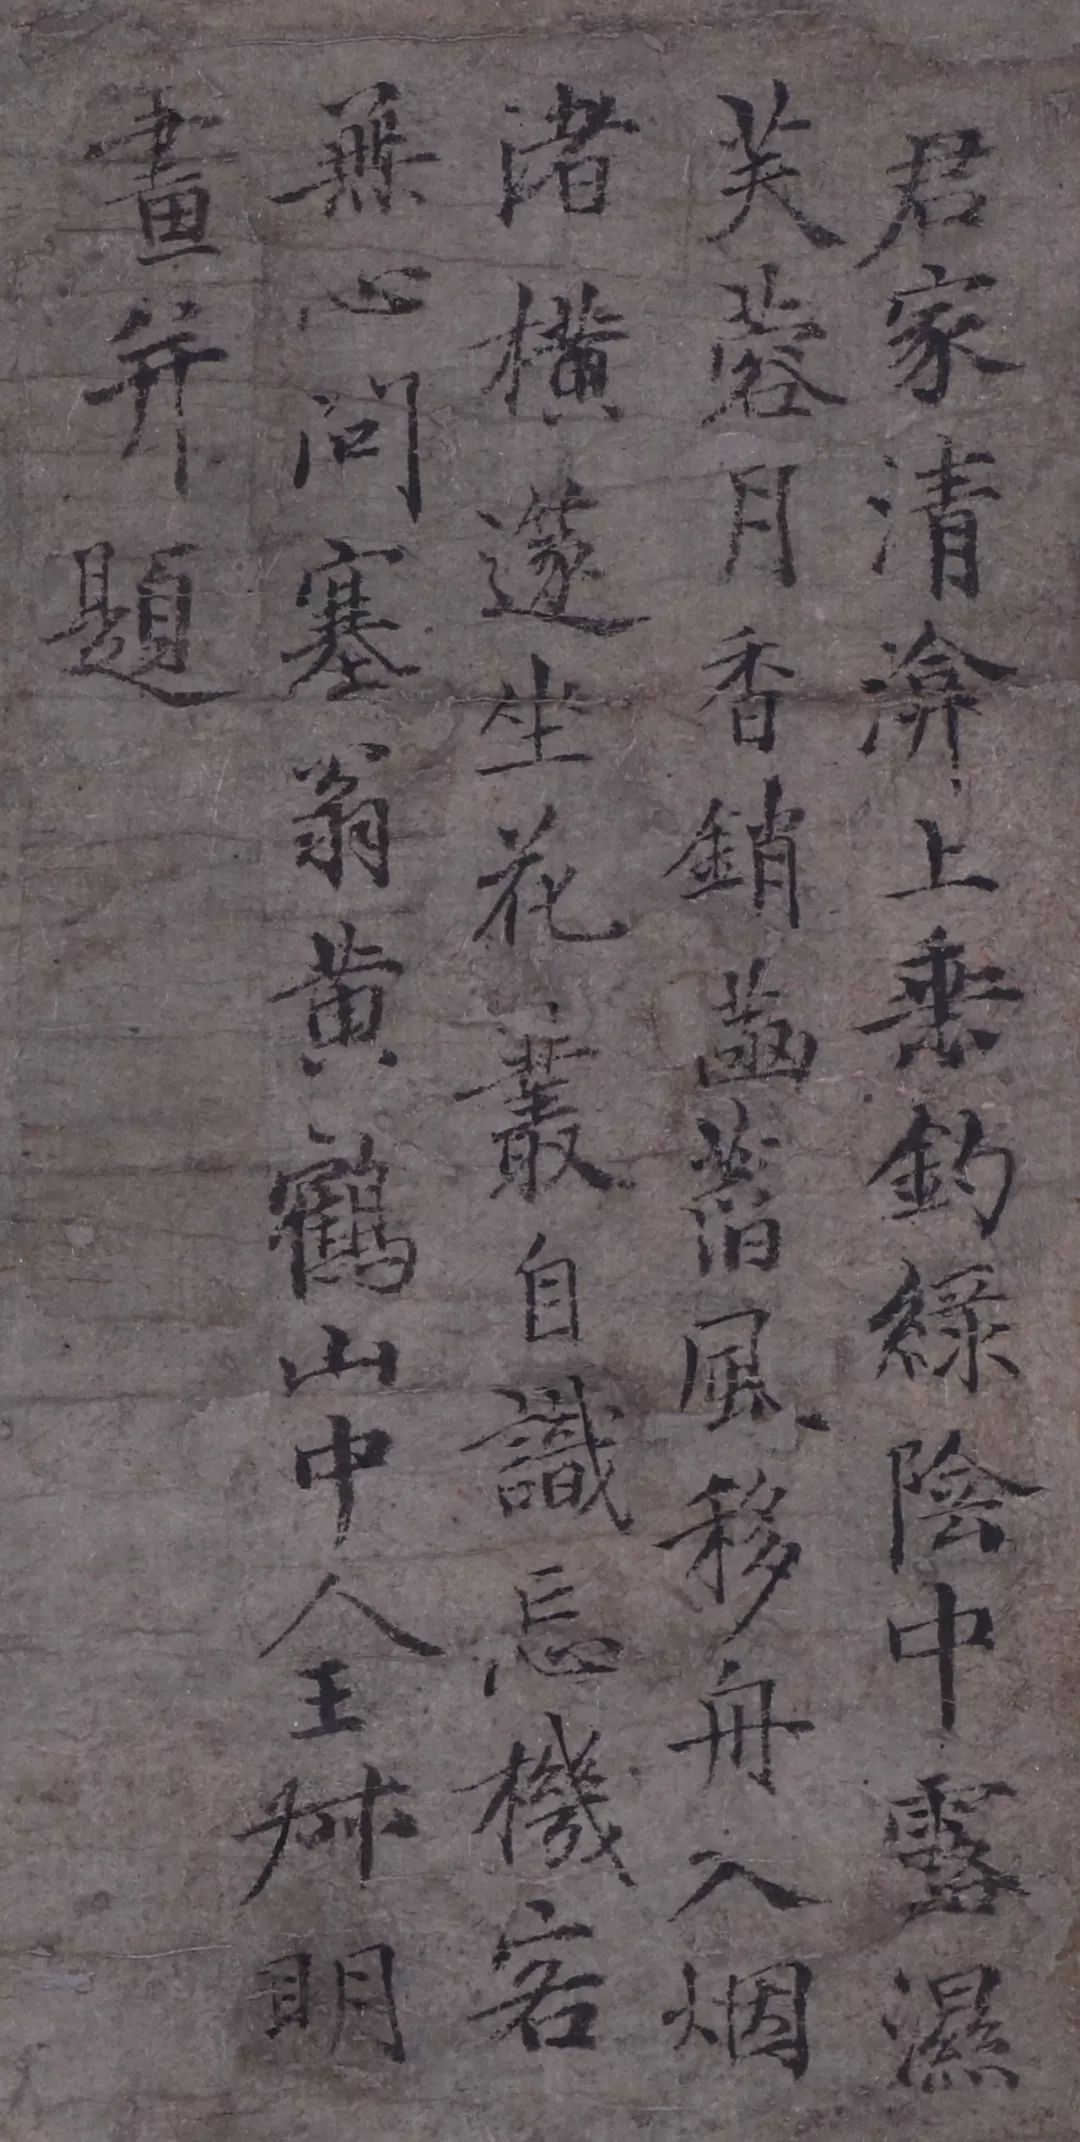 君家清渰上垂釣綠陰中露濕
芙蓉月香銷菡萏風移舟入烟
渚橫篴坐花叢自識忘機客
無心問塞翁黃鶴山中人王叔明
畫并題